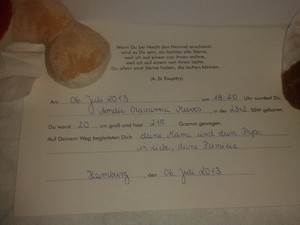 Wenn Du bei Nacht den Himmel anschaust,
wird es Dir sein, als lachten alle Sterne,
weil ich auf einem von ihnen wohne,
weil ich auf einem von ihnen lache.
Du allein wirst Sterne haben, die lachen können.
(A. St. Exupéry)
Am 06. Juli 2013 um 18:20 Uhr wurdest Du,
in der SSW geboren.
Du warst 20 cm groß und hast 218 Gramm gewogen.
Auf Deinem Weg begleiteten Dich deine Mama und dein Papa
in Liebe, deine Familie
Hamburg, den 06. Juli 2013